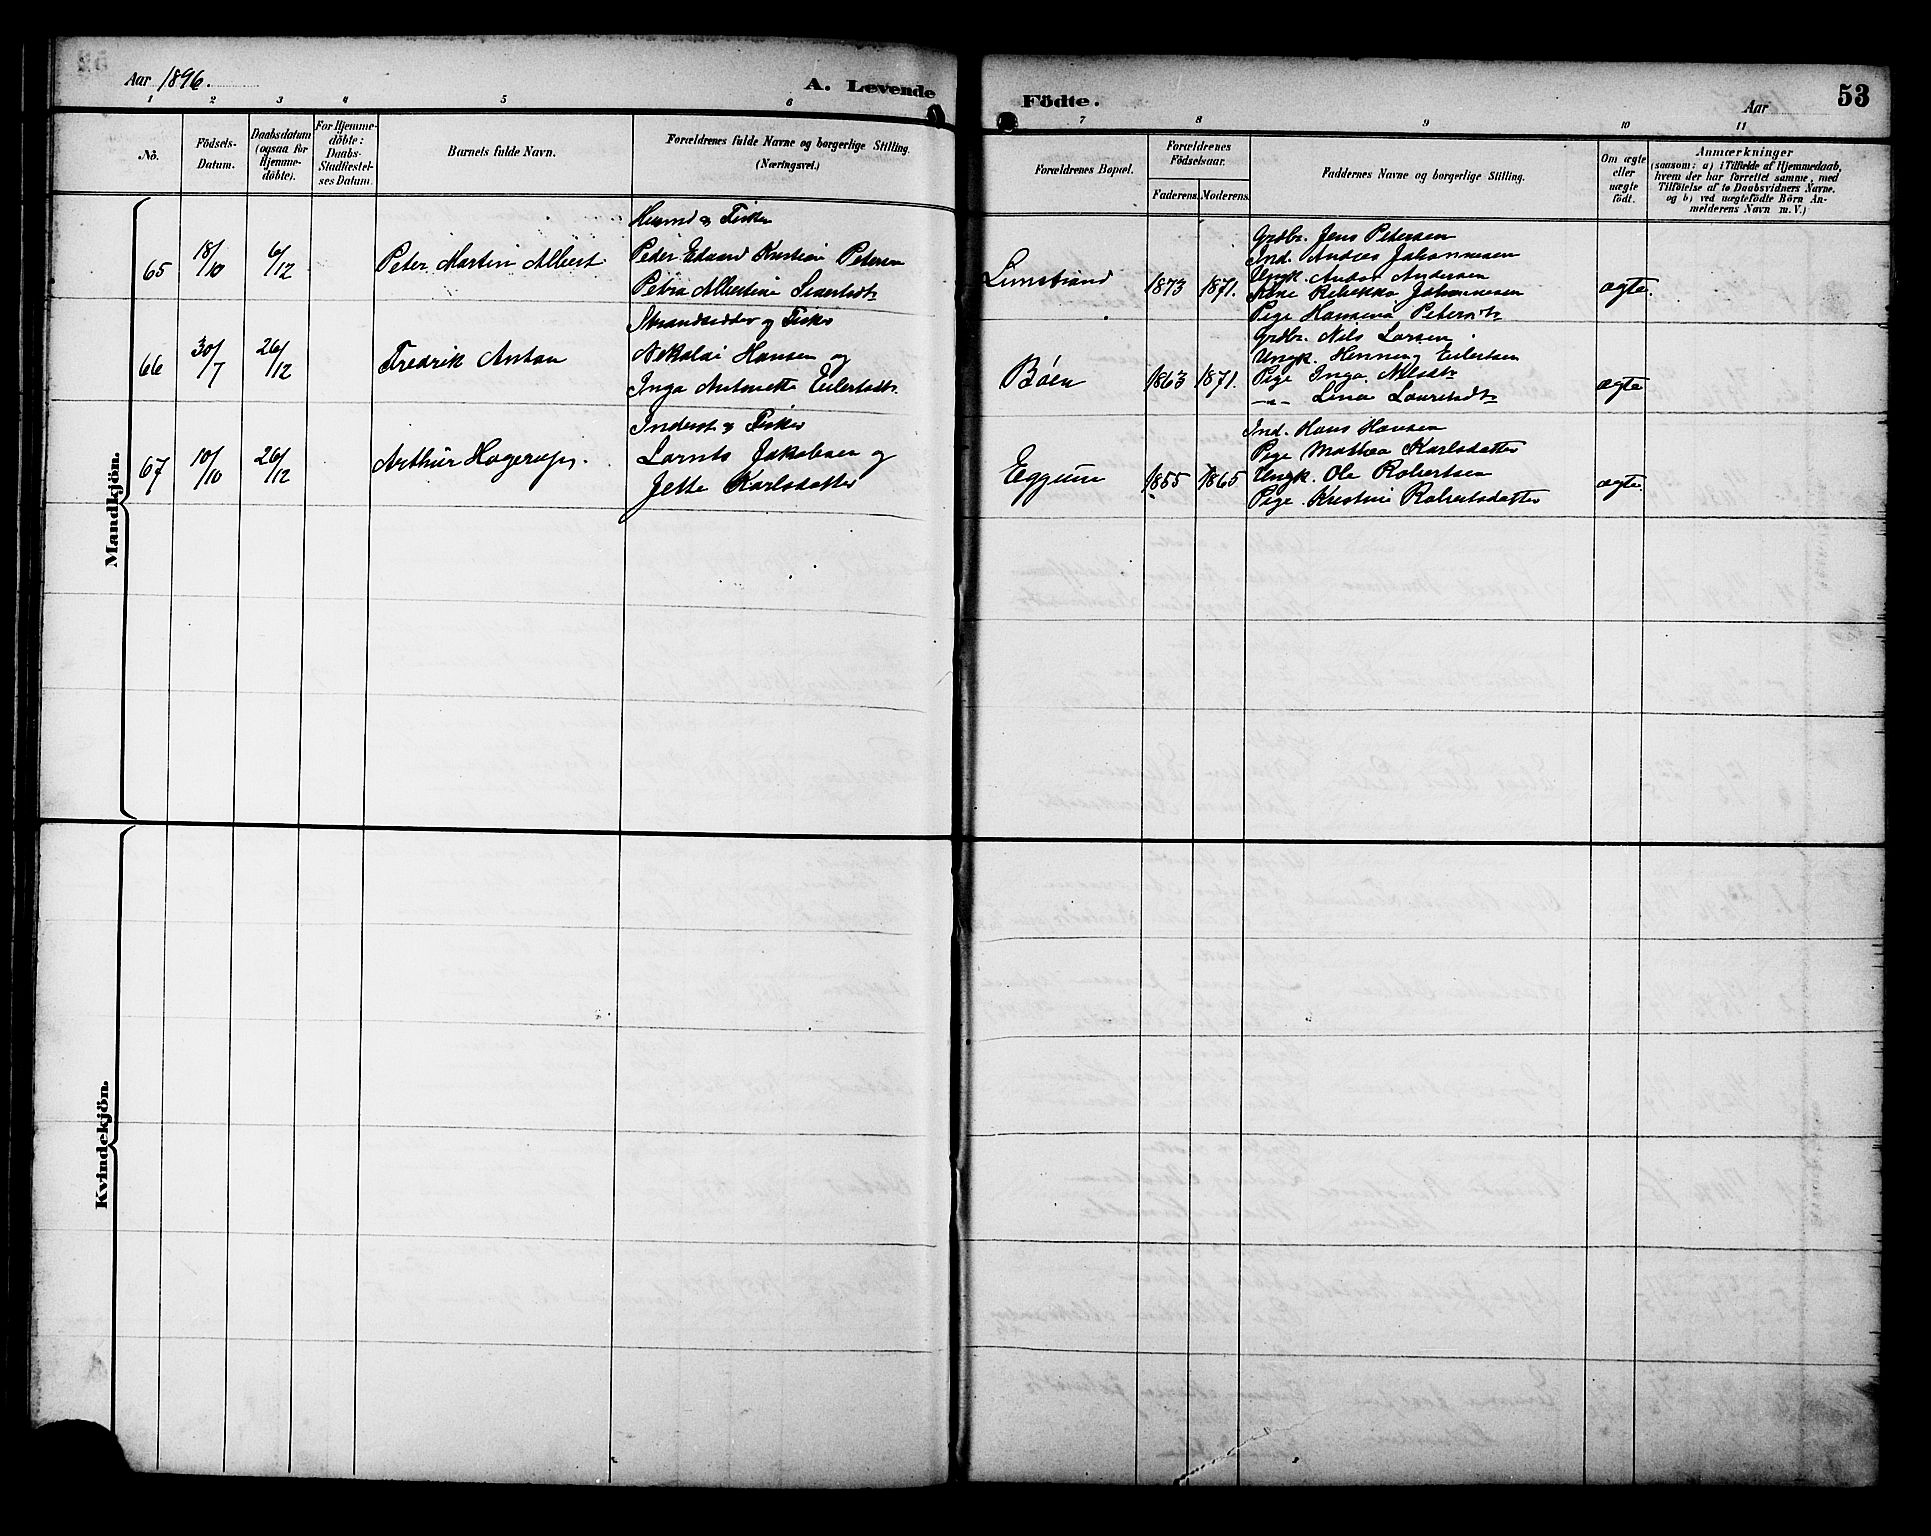 Aar 1896.
A. Levende
Födte.
Aar
53
1 2 3 4 5 6 7 8 9 10 11
No.
Födsels-
Datum.
Daabsdatum
(ogsaa for
Hjemme-
döbte).
For Hjemme-
döbte:
Daabs-
Stadfæstel-
ses Datum.
Barnets fulde Navn.
Forældrenes fulde Navne og borgerlige Stilling.
(Næringsvei.)
Forældrenes Bopæl.
Forældrenes
Födselsaar.
Faderens. Moderens.
Faddernes Navne og borgerlige Stilling.
Om ægte
eller
uægte
födt.
Anmærkninger
(saasom: a) i Tilfælde af Hjemmedaab,
hvem der har forrettet samme, med
Tilföielse af to Daabsvidners Navne.
og b) ved uægtefödte Börn An-
melderens Navn m. V.)
Mandkjön.
65 18/10 6/12 Peter Martin Albert
& Fisker
Peder Edvard Kristian Petersen
Petra Albertine Sivertsdtr
Limstrand 1873 1871.
Grdbr. Jens Petersen
Ind. Andreas Johannesen
Ungk. Anton Andersen
Kone Rebekka Johannesen
Pige Hansena Petersdtr
ægte.
66 30/7 26/12 Fredrik Anton
Strandsidder og Fisker
Nikolai Hansen og
Inga Antonette Eilertsdtr.
Böen 1863 1871.
Grdbr. Nils Larsen
Ungk. Henning Eilertsen
Pige Inga Nilsdtr
-"- Lina Lauritsdtr
ægte
67 10/10 26/12 Arthur Hagerup.
Inderst & Fisker
Lornts Jakobsen og
Jette Karlsdatter
Eggum 1855 1865
Ind. Hans Hansen
Pige Mathea Karlsdatter
Ungk. Ole Robertsen
Pige Kristine Robertsdatter
ægte.
Kvindekjön.